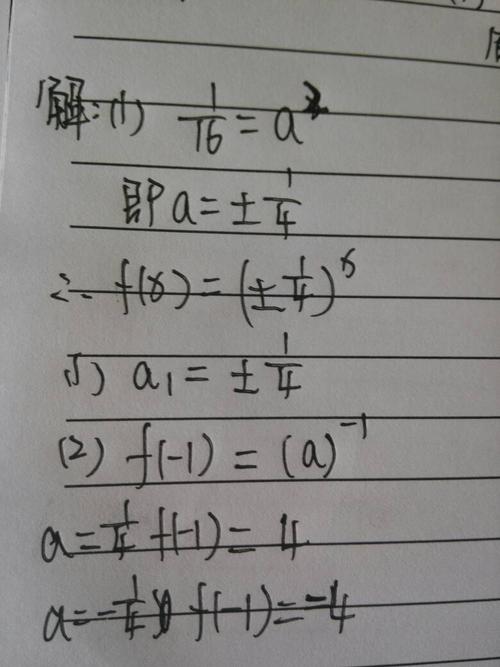 解:(1) 1/16 = a²
即 a = ± 1/4
∴ f(x) = (± 1/4)^x
(1) a₁ = ± 1/4
(2) f(-1) = (a)^-1
a = 1/4 f(-1) = 4
a = -1/4 f(-1) = -4